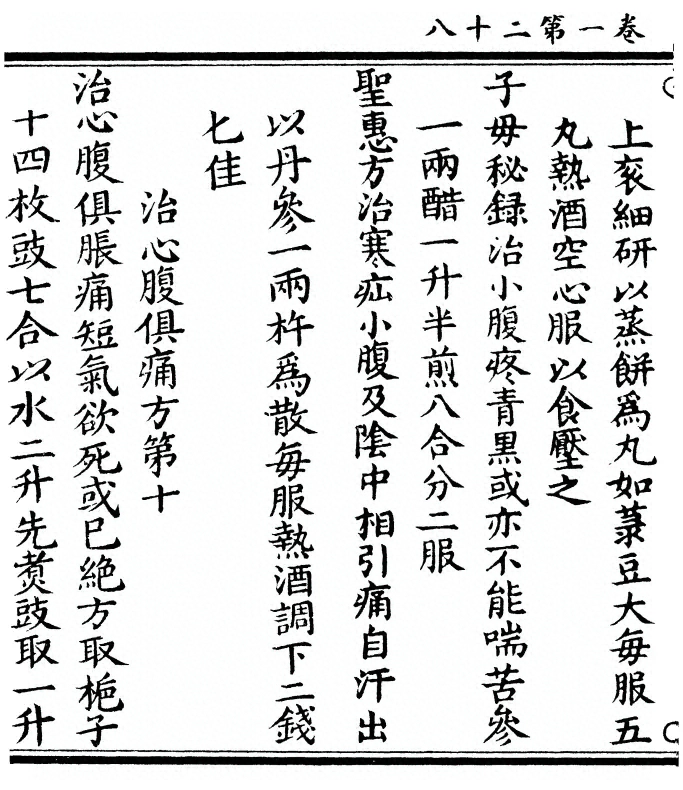 卷一第二十八
上衮細研以蒸餅爲丸如菉豆大每服五
丸熱酒空心服以食壓之
子毋秘録治小腹疼青黑或亦不能喘苦參
一兩醋一升半煎八合分二服
聖惠方治寒疝小腹及陰中相引痛自汗出
以丹參一兩杵爲散每服熱酒調下二錢
匕佳
治心腹俱痛方第十
治心腹俱脹痛短氣欲死或巳絶方取梔子
十四枚豉七合以水二升先煑豉取一升